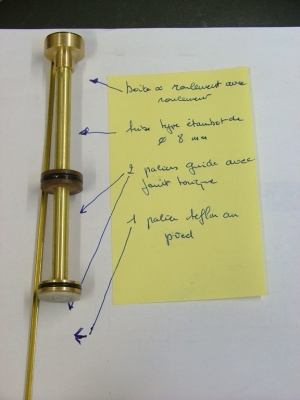 boite a roulement avec
roulement
tube type étambot de
ø 8 mm
2 paliers guide avec
joint torique
1 palier teflon au
pied